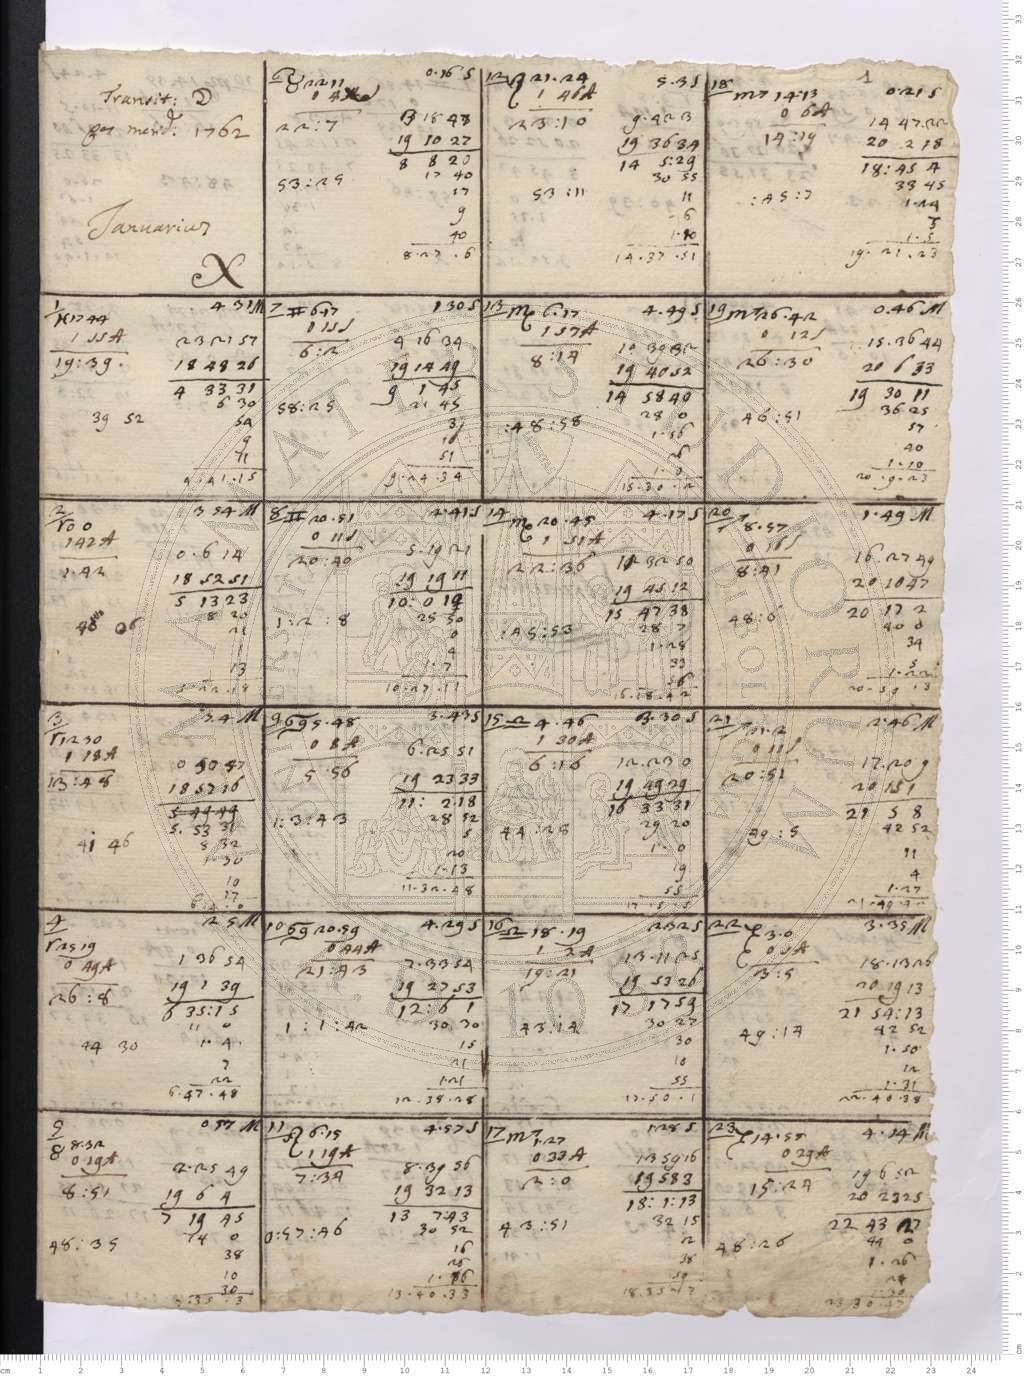 1
Transit: D
per merid: 1762
Januarius
X
6 ♉ 22 11 0.16 S
22:7
13 18 48
19 10 27
8 8 20
17 40
53:25
17
9
40
8.27.6
12 ♌ 21.24 5.3 S
1 46 A
23:10
9.42 3
19 36 34
14 5:29
30 55
53:11
11
6
1.10
14.37.51
18 ♏ 14.13 0.21 S
0 6 A
14:19
14 47 22
20 2 18
18:45 4
33 45
:45:7
1.24
5
1.5
19.21.23
1
♓ 17 44 4 31 M
1 55 A
19:39
23 21 57
18 48 26
4 33 31
6 30
39 52
54
9
11
4.41.15
7 ♊ 6 47 1 30 S
6:2
4 16 34
19 14 49
9 1 45
21 45
58:25
3
10
51
9.24.34
13 ♍ 6.17 4.49 S
1 57 A
8:14
10 39 32
19 40 52
14 58 40
28 0
:48:58
1.56
26
1.0
15.30.2
19 ♏ 26.42 0.46 M
0 12 S
26:30
15.36 44
20 6 33
19 30 11
36 25
46:51
57
40
1.10
20.9.23
2
♈ 0 0 3 54 M
1 42 A
1.42
0.6 14
18 52 51
5 13 23
8 20
48 06
21
1
13
5.22.18
8 ♊ 20.51 2.41 S
0 11 S
20:40
5.19 21
19 19 11
10:0 19
25 50
1:2:8
0
4
1.7
10.27.11
14 ♍ 20.45 4.17 S
1 51 A
22:36
11 32 50
19 45 12
15 47 38
28 7
:45:53
1.28
33
56
20 ♐ 8.57 1.49 M
0 16 S
8:41
16.27 49
20 10 47
20 17 2
40 0
48:6
34
5
1.22
20.59.13
3
♈ 12 30 3.4 M
1 18 A
13:48
0 50 57
18 57 16
5 49 49
5.53 31
8 32
41 46
1.30
10
17
9 ♋ 5.48 3.43 S
0 8 A
5 56
6.25 51
19 23 33
11:2 18
28 52
1:3:43
5
20
1.13
11.32.48
15 ♎ 4.46 3.30 S
1 30 A
6:16
12.23 0
19 49 29
16 33 31
29 20
44:28
1.0
19
55
17.5.5
21 ♐ 2.46 M
0 11 S
20:51
17.20 9
20 15 1
21 5 8
42 52
49:5
11
4
1.27
4
♈ 25 19 2.5 M
0 49 A
26:8
1 36 54
19 1 39
6 35:15
11 0
44 30
1.4
7
22
6.47.48
10 ♋ 20.59 4.29 S
0 44 A
21:43
7.33 54
19 27 53
12:6 1
30 30
1:1:42
15
21
1.21
12.38.28
16 ♎ 18.19 2.32 S
1 2 A
19:21
13.11 25
19 53 26
17 17 59
30 27
43:14
30
10
55
17.50.1
22 ♑ 3.0 3.35 M
0 5 A
3:5
18.13 26
20 19 13
21 54:13
42 52
49:14
1.50
12
1.31
22.40.38
5
♉ 8.32 0.57 M
0.19 A
8:51
2.25 49
19 6 4
7 19 45
14 0
48:35
38
10
30
7.35.3
11 ♌ 6.15 4.57 S
1 19 A
7:34
8.39 56
19 32 13
13 7:43
30 52
0:57:46
16
26
1.16
13.40.33
17 ♏ 1.27 1.28 S
0.33 A
2:0
13 59 16
19 58 3
18:1:13
32 15
43:51
2
38
59
23 ♑ 14.55 4.14 M
0 29 A
15:24
19 6 52
20 23 25
22 43 27
44 0
48:26
1.26
24
1.30
23 30.47